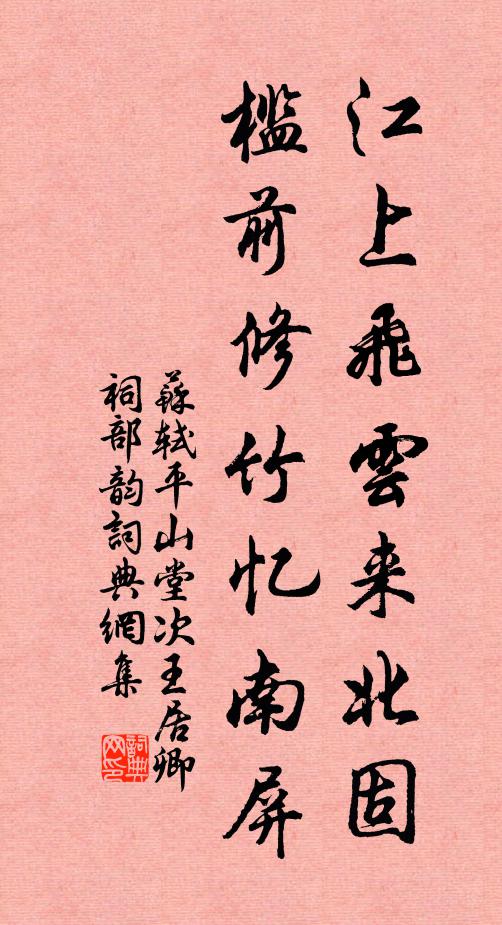 江上飛雲来北固
檻前修竹忆南屏
蘇轼平山堂次王居卿
祠部韵詞典網集
詞典网印